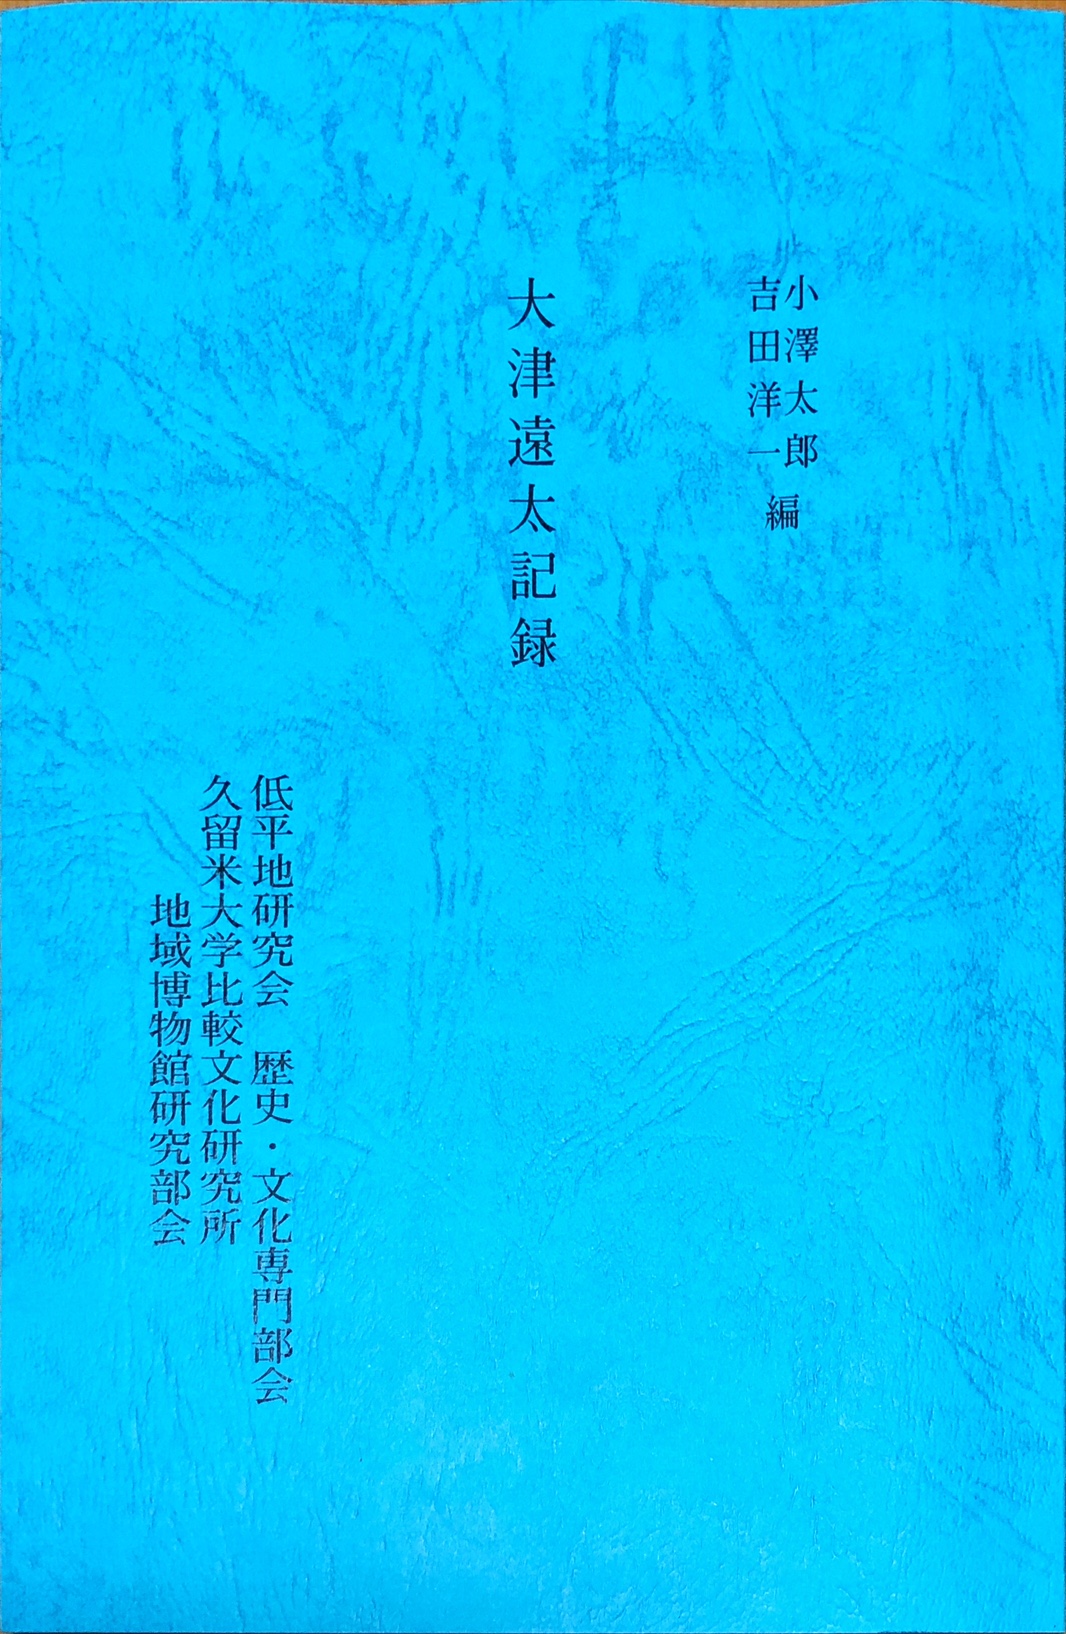 小澤太郎
吉田洋一
編
大津遠太記録
低平地研究会　歴史・文化専門部会
久留米大学比較文化研究所
地域博物館研究部会